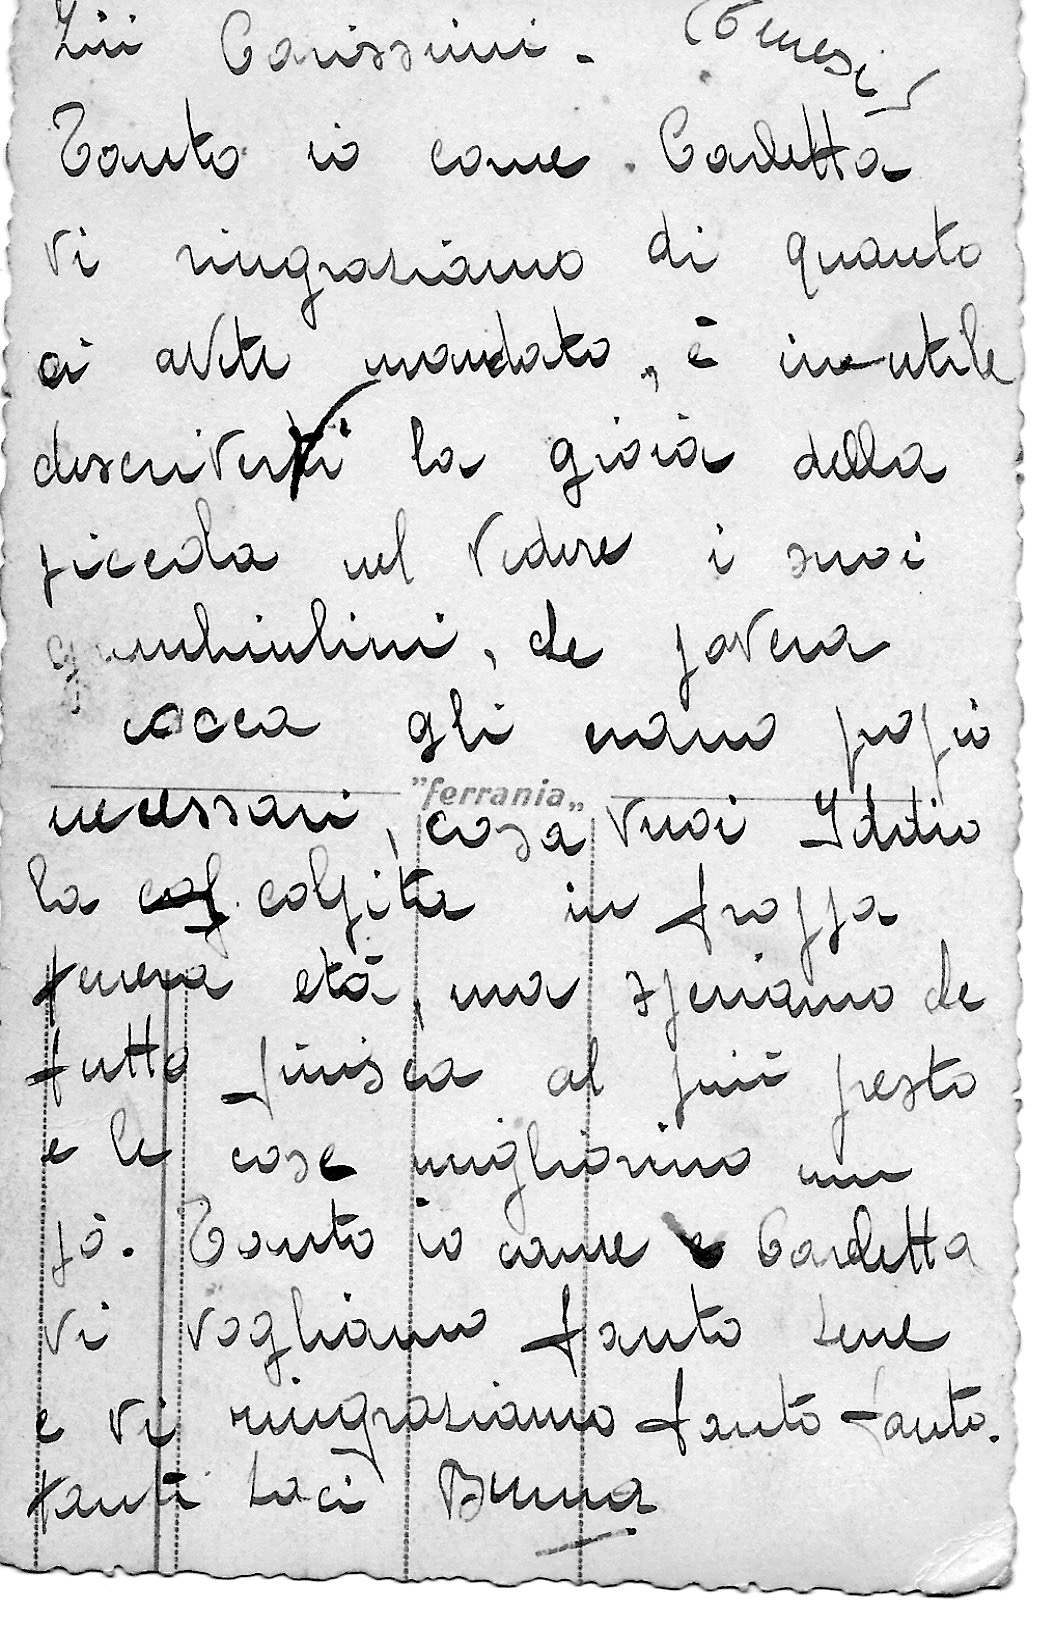 Zii Carissimi.
Tanto io come Carletta
vi ringraziamo di quanto
ci avete mandato, è inutile
descrivervi la gioia della
piccola nel vedere i suoi
grembiulini, che povera
cocca gli erano propio
"ferrania"
necessari, cosa vuoi Iddio
la colpita in troppa
tenera età, ma speriamo che
tutto finisca al più presto
e le cose migliorino un
pò. Tanto io come Carletta
vi vogliamo tanto bene
e vi ringraziamo tanto tanto.
tanti baci Bruna